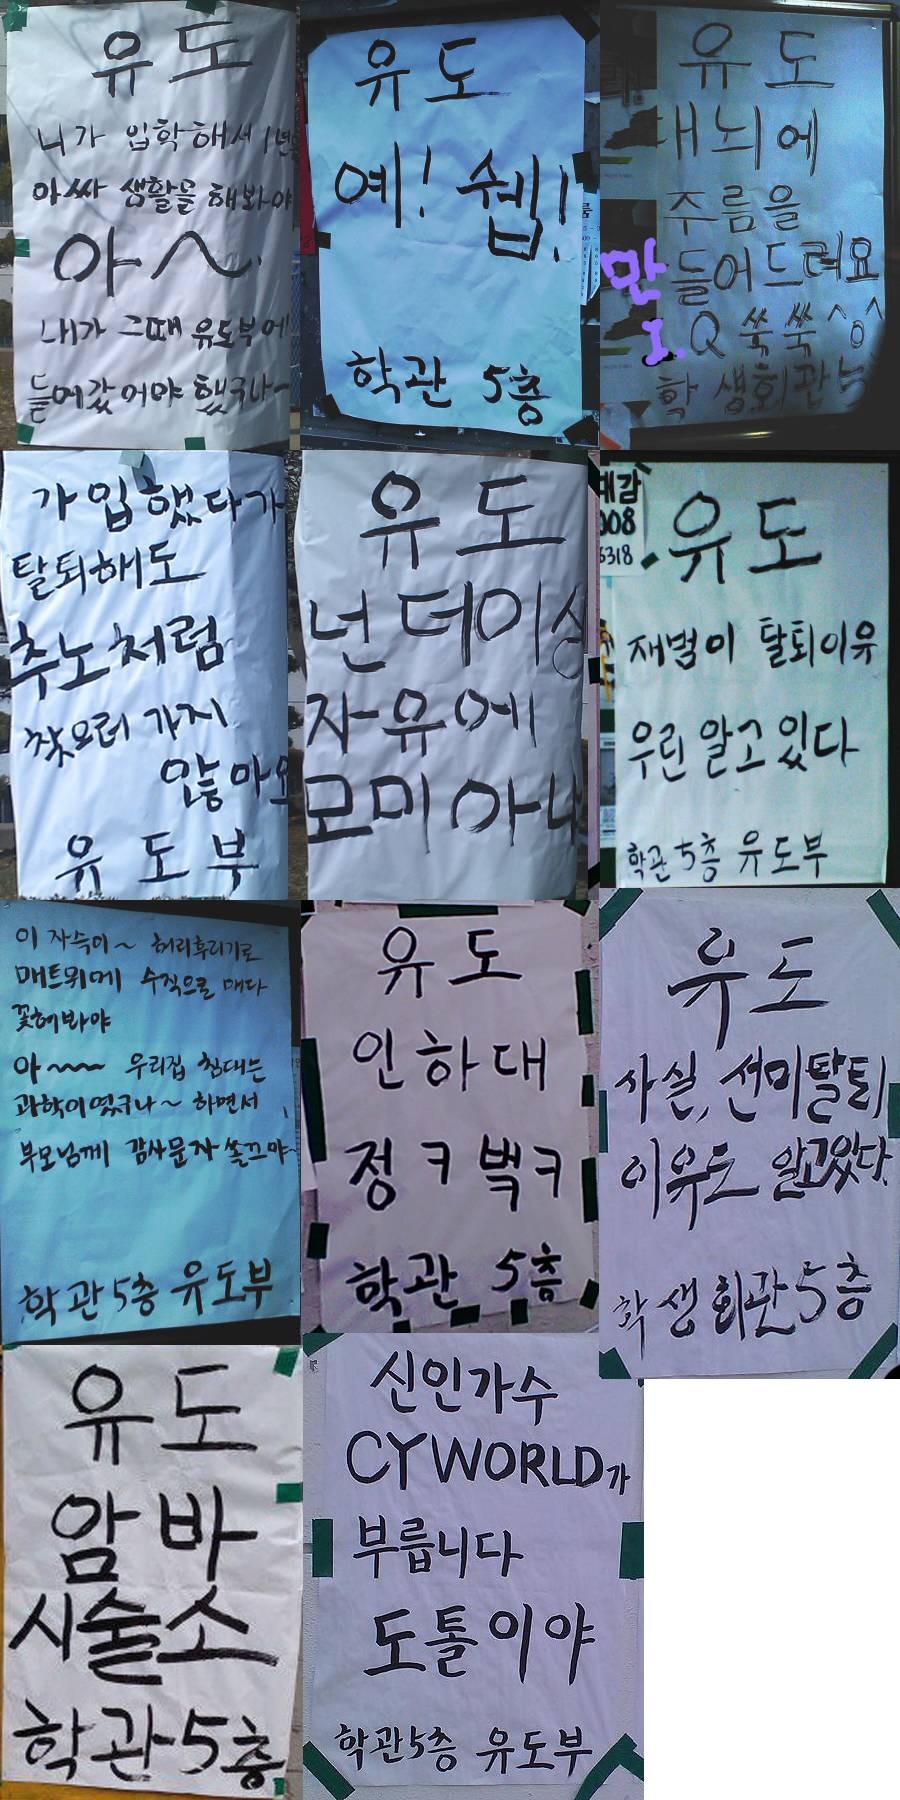 유도
니가 입학해서 1년을
아싸 생활을 해봐야
아~
내가 그때 유도부에
들어갔어야 했구나~
유도
예! 쉡!
학관 5층
유도
대뇌에
주름을
만들어드려요
I.Q 쑥쑥 ^o^
학생회관 5
가입했다가
탈퇴해도
추노처럼
찾으러 가지
않아요
유도부
유도
넌 더이상
자유에
모미 아냐
예감
008
6318
유도
재범이 탈퇴이유
우린 알고있다
학관 5층 유도부
이 자슥이~ 허리후리기로
매트위에 수직으로 매다
꽂혀봐야
아~~~ 우리집 침대는
과학이였구나~ 하면서
부모님께 감사문자 쏠끄야~
학관5층 유도부
유도
인하대
정ㅋ벅ㅋ
학관 5층
유도
사실, 선미탈퇴
이유도 알고있다.
학생회관5층
유도
암바
시술소
학관5층
신인가수
CYWORLD가
부릅니다
도톨이야
학관5층 유도부